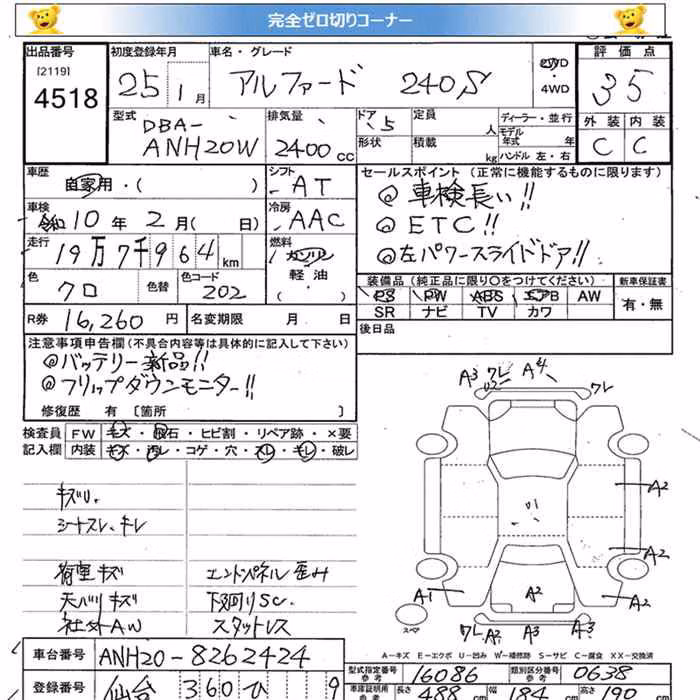 完全ゼロ切りコーナー
出品番号 初度登録年月 車名・グレード 評価点
[2119]
4518 25 1月 アルファード 240S 2WD 4WD 35
型式 排気量 ドア 定員 ディーラー・並行 外装 内装
DBA- 5 人 モデル年式 年
ANH20W 2400cc 形状 積載 kg ハンドル 左・右 C C
車歴 シフト セールスポイント (正常に機能するものに限ります)
自家用・( ) AT ◎車検長い!!
車検 冷房 ◎ETC!!
令和10年2月( 日) AAC ◎左パワースライドドア!!
走行 燃料
19万7千964km ガソリン
色 色替 色コード 軽油 装備品(純正品に限り〇をつけてください) 新車保証書
クロ 202 ( ) PS PW ABS エアB AW 有・無
SR ナビ TV カワ
R券 16,260円 名変期限 月 日 後日品
注意事項申告欄(不具合内容等は具体的に記入して下さい)
◎バッテリー新品!!
◎フリップダウンモニター!!
修復歴 有 〔箇所 〕
検査員 FW キズ・飛石・ヒビ割・リペア跡・×要
記入欄 内装 キズ・汚レ・コゲ・穴・スレ・キレ・破レ
キズU.
シートスレ、キレ
荷室キズ エンドパネル歪み
天バリキズ 下回りSC.
社外AW スタッドレス
A3 ワレ U2 A4 ワレ
A2
A2
A1 A2 A2
スペア ワレ A2 A3 A3
A-キズ E-エクボ U-凹み W-補修跡 S-サビ C-腐食 XX-交換済
車台番号 ANH20-8262424
型式指定番号 参考 16086 類別区分番号 参考 0638
登録番号 仙台 360 ひ 9
車庫証明用 参考 長さ 488 cm 幅 184 cm 高さ 190